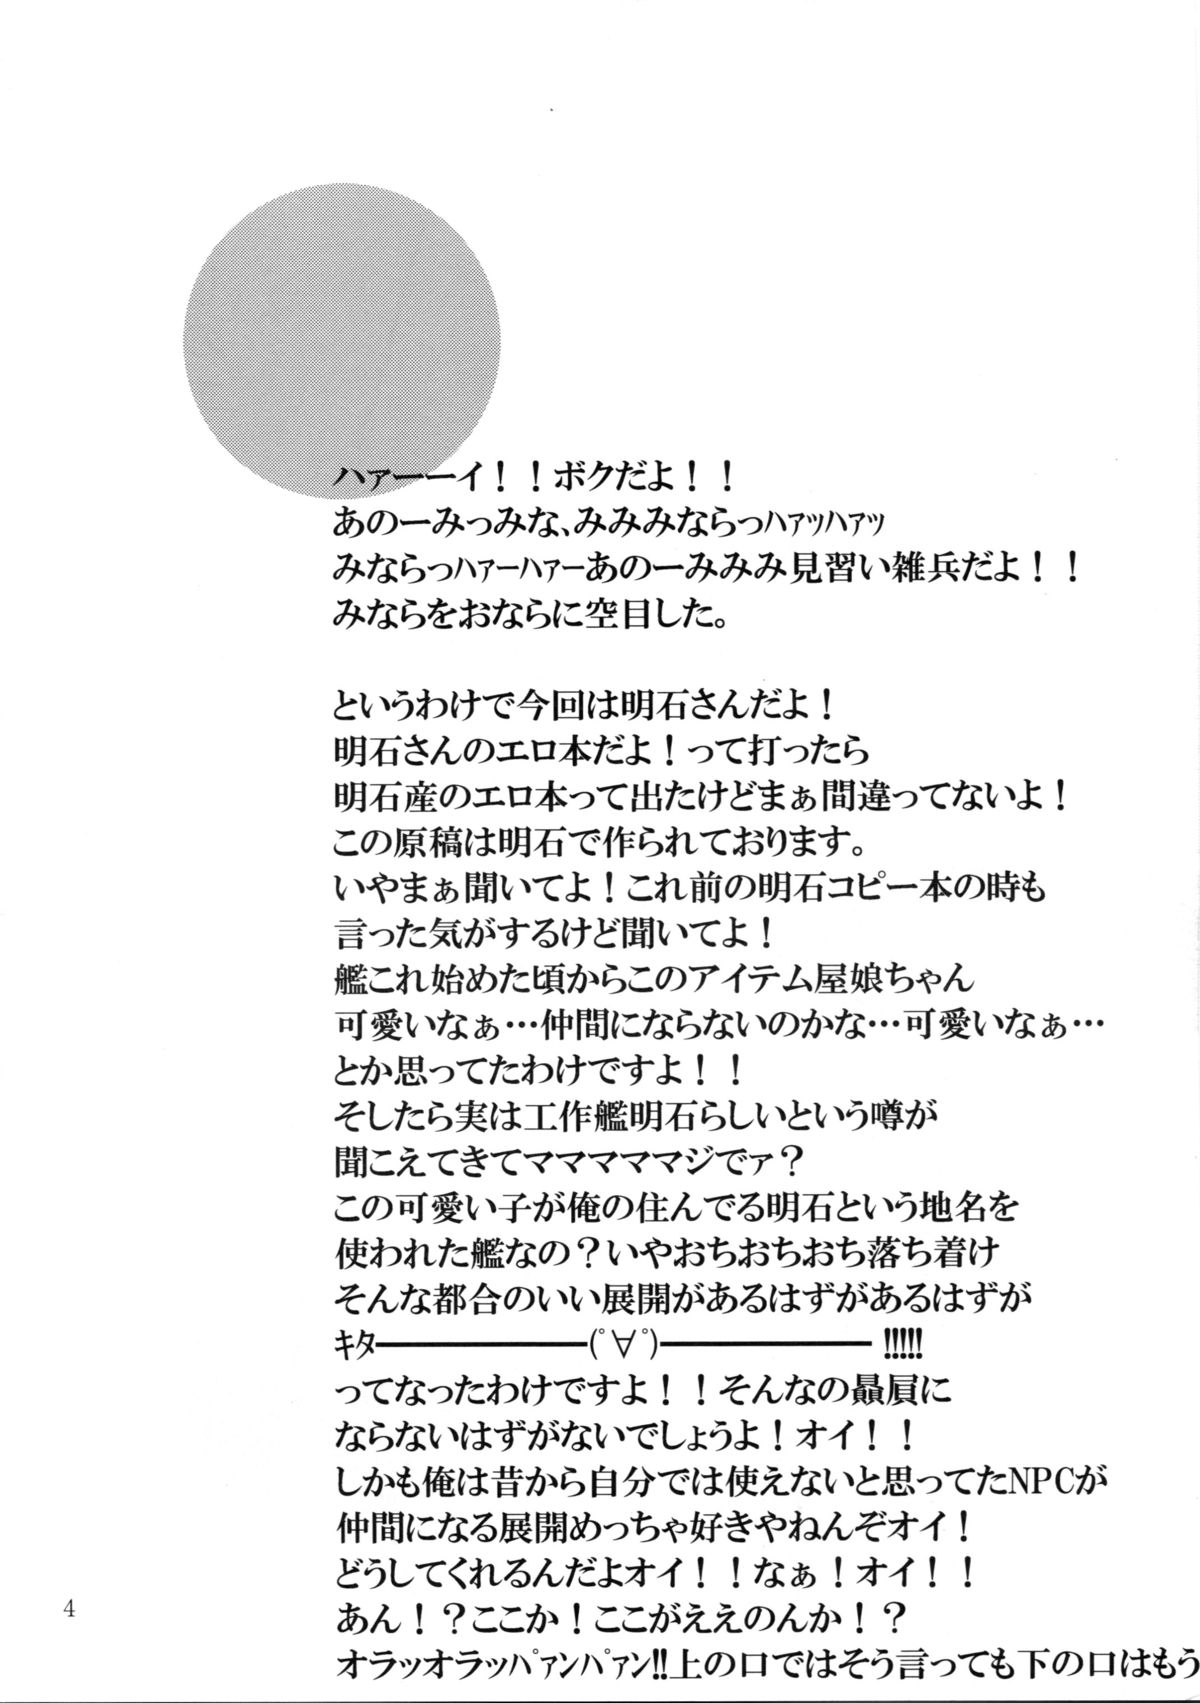 ハァーーイ！！ボクだよ！！
あのーみっみな、みみみならっハァッハァッ
みならっハァーハァーあのーみみみ見習い雑兵だよ！！
みならをおならに空目した。
というわけで今回は明石さんだよ！
明石さんのエロ本だよ！って打ったら
明石産のエロ本って出たけどまぁ間違ってないよ！
この原稿は明石で作られております。
いやまぁ聞いてよ！これ前の明石コピー本の時も
言った気がするけど聞いてよ！
艦これ始めた頃からこのアイテム屋娘ちゃん
可愛いなぁ…仲間にならないのかな…可愛いなぁ…
とか思ってたわけですよ！！
そしたら実は工作艦明石らしいという噂が
聞こえてきてママママママジでァ？
この可愛い子が俺の住んでる明石という地名を
使われた艦なの？いやおちおちおち落ち着け
そんな都合のいい展開があるはずがあるはずが
ｷﾀ━━━━━━(ﾟ∀ﾟ)━━━━━━ !!!!!
ってなったわけですよ！！そんなの贔屓に
ならないはずがないでしょうよ！オイ！！
しかも俺は昔から自分では使えないと思ってたNPCが
仲間になる展開めっちゃ好きやねんぞオイ！
どうしてくれるんだよオイ！！なぁ！オイ！！
あん！？ここか！ここがええのんか！？
オラッオラッパァンパァン!!上の口ではそう言っても下の口はもう
4